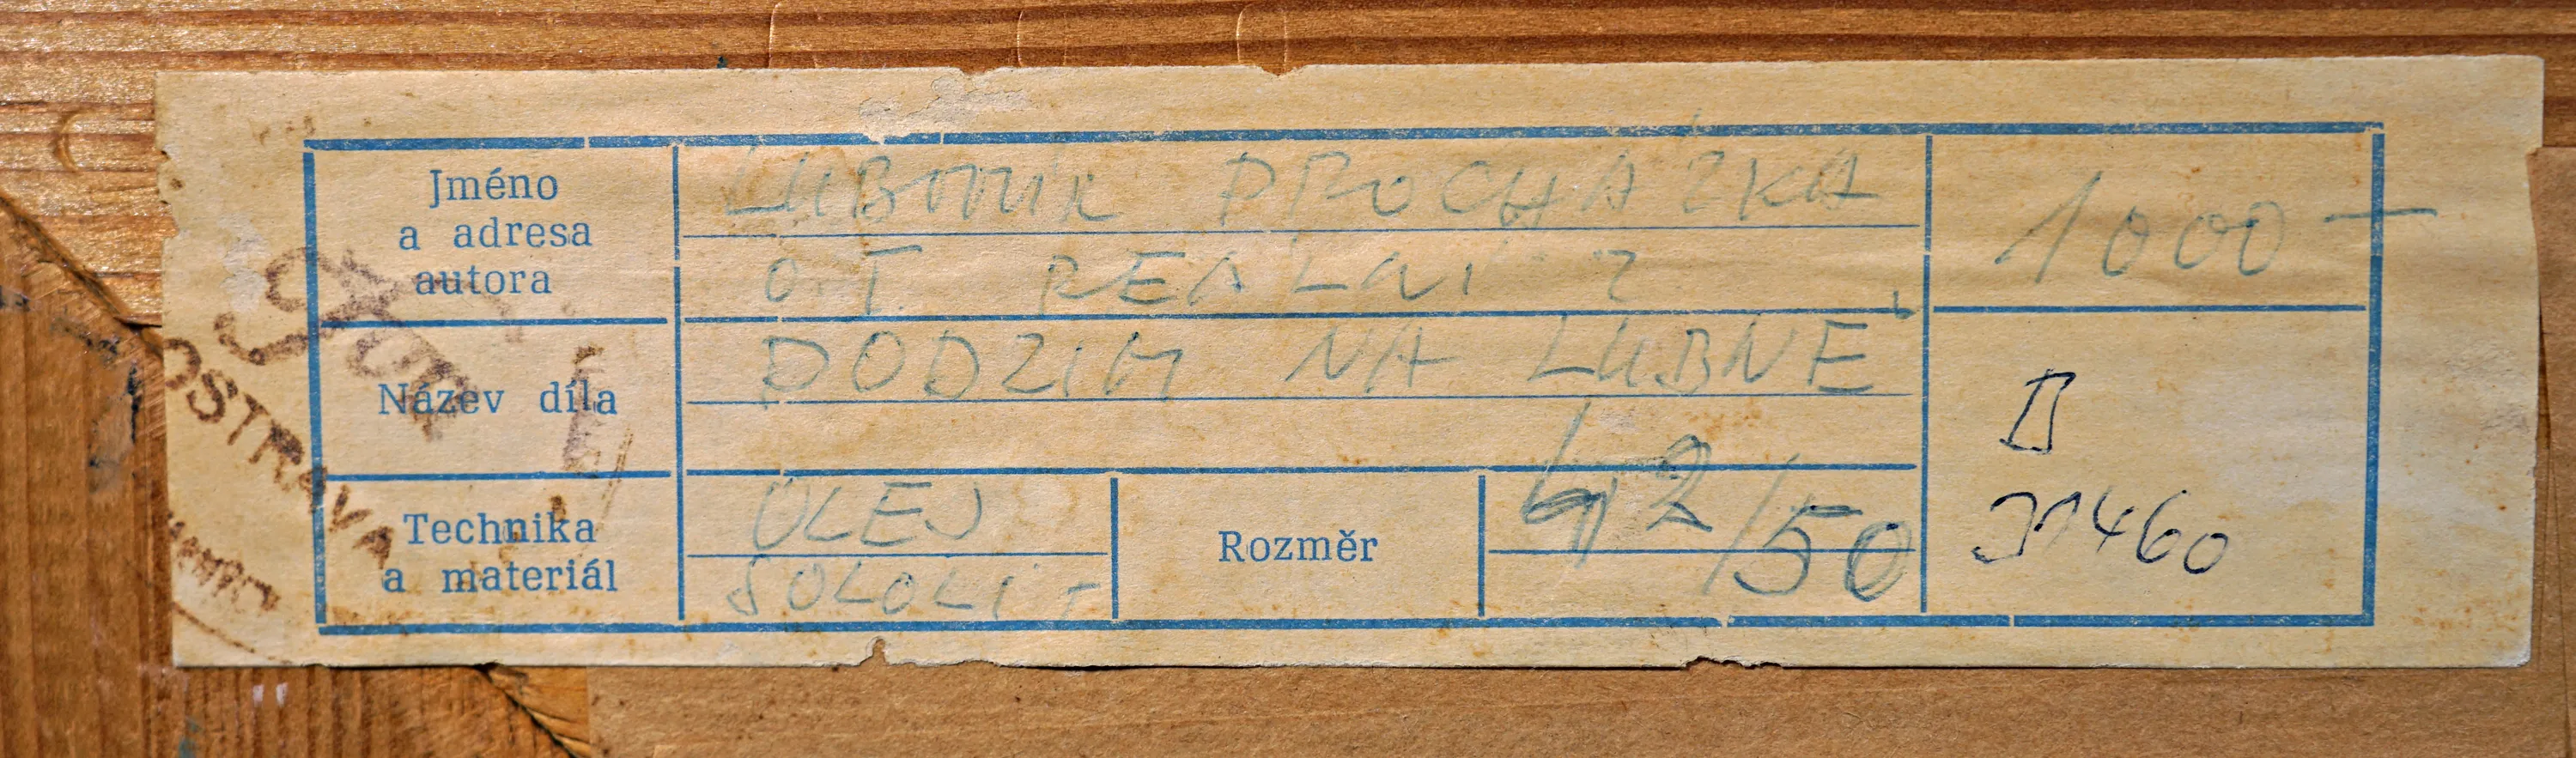 Jméno
a adresa
autora
LUBOMÍR PROCHÁZKA
REÁLNÍ
1000—
Název díla
PODZIM NA LUBNĚ
Technika
a materiál
OLEJ
SOLOLIT
Rozměr
42/50
31460
OSTRAVA